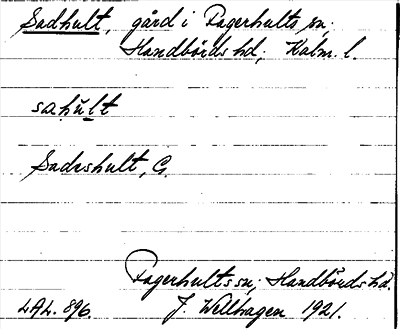 Sadhult, gård i Fagerhults sn;
Handbörds hd; Kalm. l.
sahult
Sadeshult, G.
Fagerhults sn; Handbörds hd.
LAL. 896. J. Wellhagen 1921.